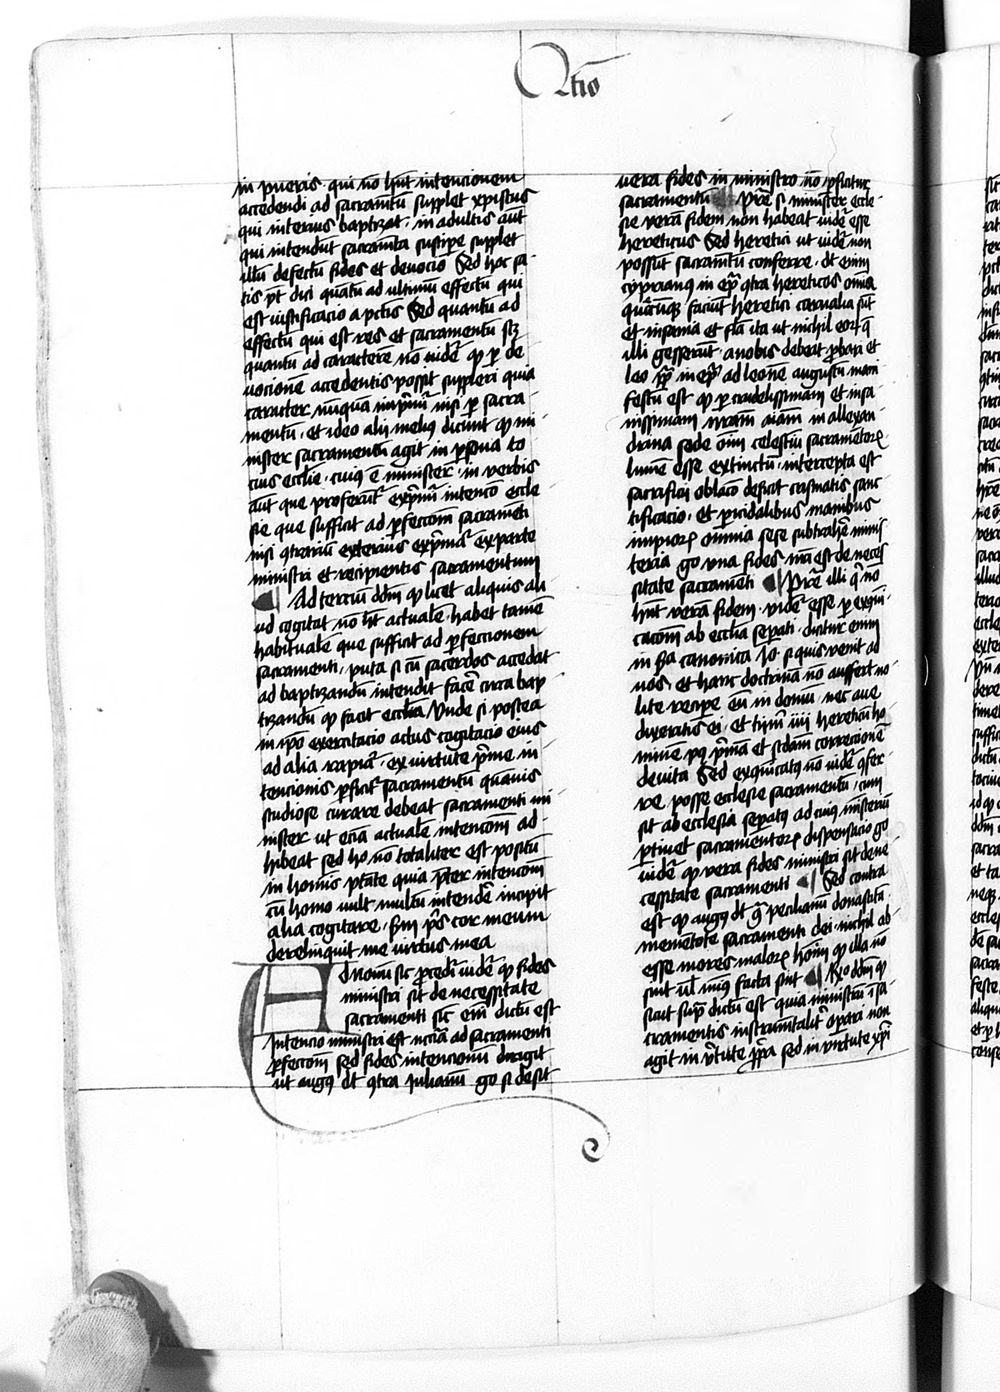 Qtio
in pueris qui nō hn̄t intencionem
accedendi ad sacramtū supplet xpistus
qui interius baptizat · in adultis aūt
qui intendūt sacramta suscipe supplet
illū defectū fides et deuocio Sed hoc sa-
tis pt̄ dici quātū ad ultimū effectū qui
est iustificacio a pctīs Sed quantū ad
effectū qui est res et sacramentū scz
quantū ad caractere nō uidet̄ qp per de
uocione accedentis possit suppleri quia
caracter nūquā inprimit̄ nisi per sacra-
mentū · et ideo alij melius dicunt qp mi
nister sacramenti agit in persona to
cius ecclie · cuius ē minister · in verbis
aūt que proferūt̄ exprimit̄ intencō eccle
sie que sufficit ad perfectom sacramēti
nisi qtrariū exterius exprimat̄ exparte
ministri et recipientis sacramentum
¶ Ad terciū dōm qp licet aliquis ali
ud cogitat nō hēt actualē · habet tamē
habitualē que sufficit ad perfeccionem
sacramenti · puta si cū sacerdos accedat
ad baptizandū intendit facere circa bap
tizandū qp facit ecclīa Unde si postea
in ipo exercitacio actus cogitacio eius
ad alia rapiat̄ · ex virtute prime in-
tencionis perficit̄ sacramentū quāuis
studiose curare debeat sacramenti mi
nister ut eciā actualē intencōm ad-
hibeat sed ho nō totaliter est positū
in homīs ptāte quia preter intencōm
cū homo uult multū intendere incipit
alia cogitare · scdm ps̄ cor meum
dereliquit me virtus mea
Ad nonū sic procedit̄ uidet̄ qp fides
ministri sit de necessitate
sacramenti sic eim̄ dictū est
Intencio ministri est nccīa ad sacramenti
perfectōm sed fides intencionū dirigit
ut augus dt qtra Iulianū go si desit
uera fides in ministro nō perficitur
sacramentū ¶ Pretr̄ si minister eccle-
sie verā fidem non habeat uidet̄ esse
hereticus Sed heretici ut uidet̄ non
possūt sacramtū conferre · dt enim
cyprianus in epla qtra hereticos omīa
qūcūqz faciūt heretici carnalia sūt
et inania et falsa ita ut nichil eorū q̄
illi gesserūt anobis debeat probari et
leo pp̄ in epla ad leonē augustū mani
festū est qp per crudelissimam et insa
nissimam uesām aiam in allexan-
drina sede oīm celestiū sacramētorz
lumē esse extinctū · intercepta est
sacrificij oblacō deficit crismatis sanc
tificacio · et paricidalibus manibus
impiorz omnia sese subtraxēre minis
teria go uera fides mri est de neces
sitate sacramēti ¶ Pretr̄ illi qui nō
hn̄t verā fidem · videt̄ esse per excōi-
cacōm ab ecclīa sepati · dicitur enim
in 2a canonica Io · si quis venit ad
uos · et hanc doctrinā nō affert no-
lite recipe eū in domū · nec aue
dixeritis ei · et tytū iij hereticū ho-
minē post primā et scdam correctionē
deuita Sed excōicatus nō uidet̄ qfer-
re posse ecclesie sacramentū · cum
sit ab ecclesia sepatus ad cuius ministeriū
pertinet sacramentorz dispensacio go
uidet̄ qp vera fides ministri sit de ne
cessitate sacramenti ¶ Sed contra
est qp augus dt qtra petilianū donastistā
mementote sacramenti dei · nichil ab
esse mores malorz hoīm qp illa nō
sint ul minus sc̄a sint ¶ Rn̄o dōm qp
sicut supra dictū est · quia ministrū i sa-
cramentis instrumtalitr opari non
agit in vrtute ppria sed in virtute xpi